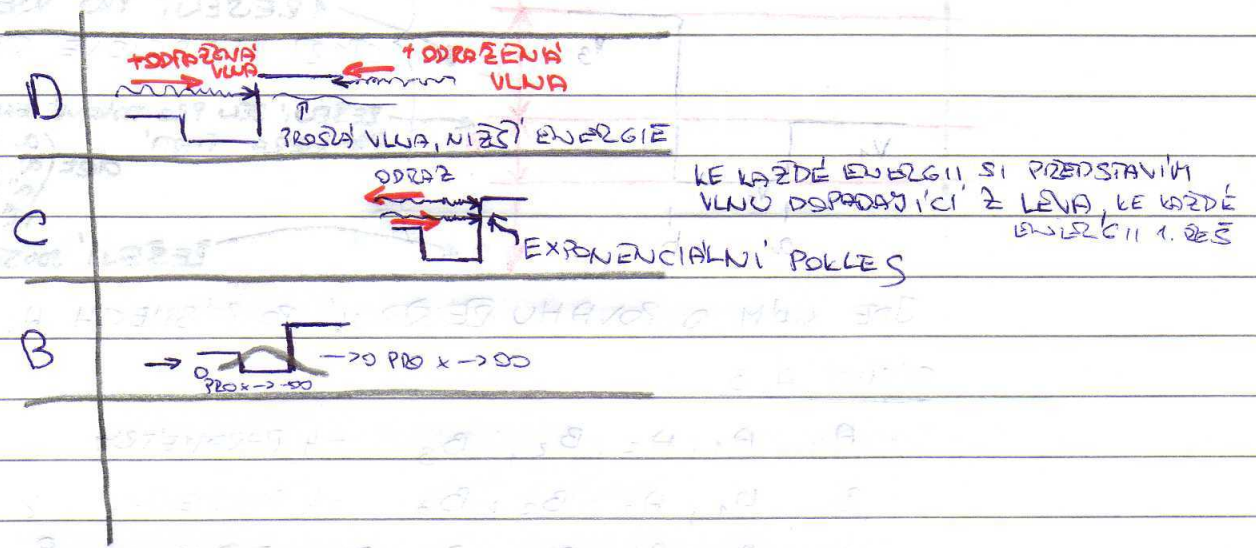 D
+ODRAŽENÁ
VLNA
+ ODRAŽENÁ
VLNA
PROŠLÁ VLNA, NIŽŠÍ ENERGIE
C
ODRAZ
EXPONENCIÁLNÍ POKLES
KE KAŽDÉ ENERGII SI PŘEDSTAVÍM
VLNU DOPADAJÍCÍ Z LEVA, KE KAŽDÉ
ENERGII 1. ŘEŠ
B
→
0
PRO x -> -∞
-> 0 PRO x -> ∞